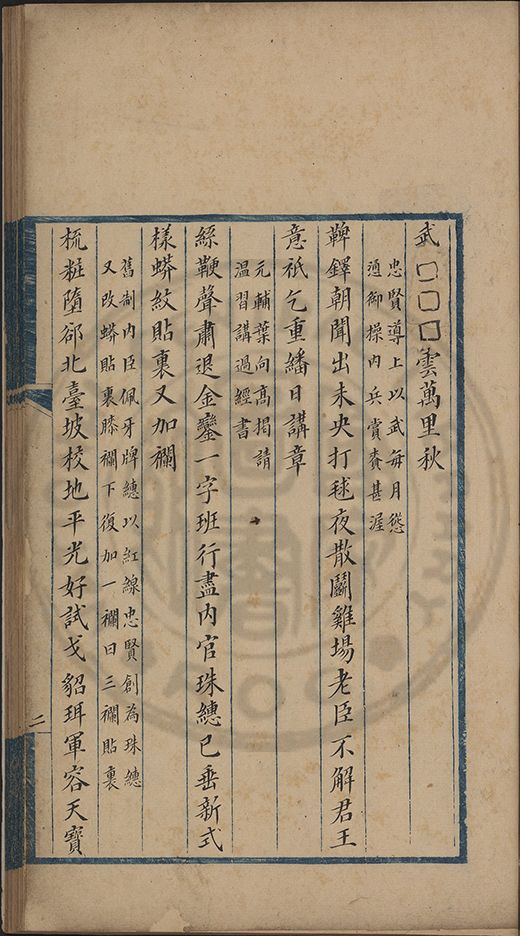 武□□□雲萬里秋
忠賢導上以武每月慫
適御操内兵賞賚甚渥
鞞鐸朝聞出未央打毬夜散鬬雞場老臣不解君王
意祇乞重繙日講章
元輔葉向高揭請
溫習講過經書
絲鞭聲肅退金鑾一字班行盡内官珠繐已垂新式
樣蟒紋貼裏又加襴
舊制内臣佩牙牌繐以紅線忠賢創為珠繐
又改蟒貼裏膝襴下復加一襴曰三襴貼裏
梳粧墮郤北臺坡校地平光好試戈貂珥軍容天寶
二